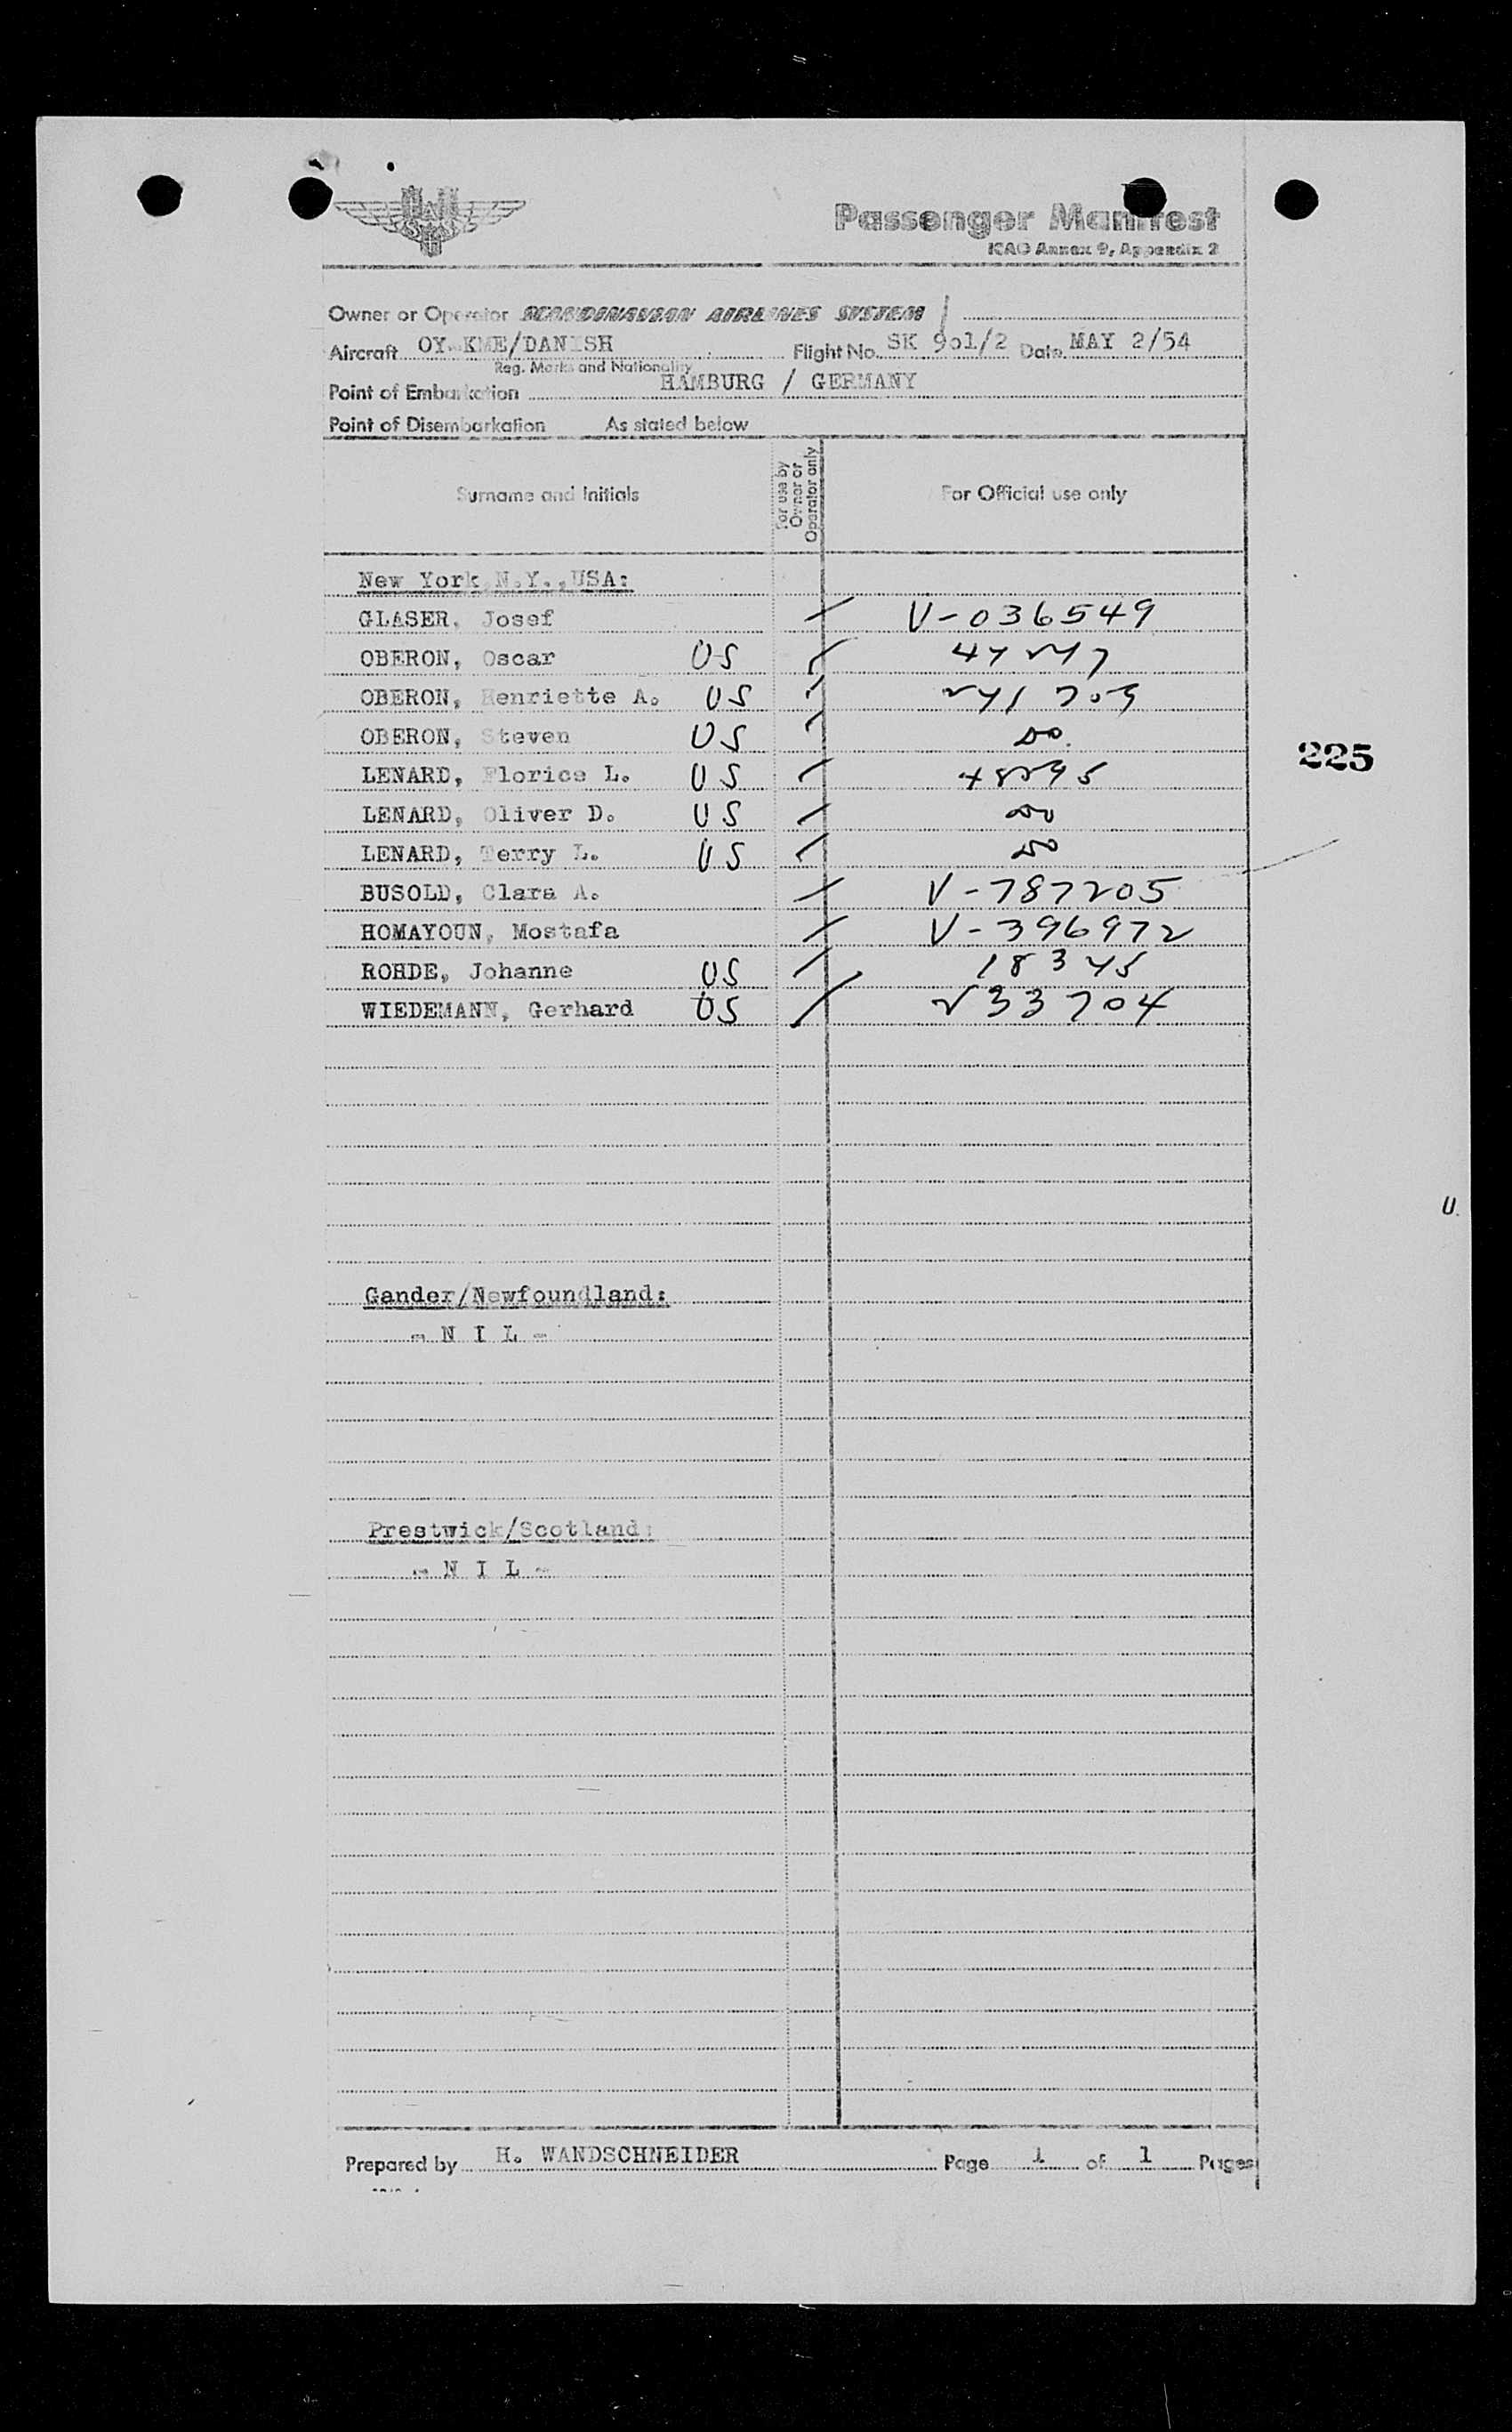 SAS
Passenger Manifest
ICAO Annex 9, Appendix 2
Owner or Operator SCANDINAVIAN AIRLINES SYSTEM
Aircraft OY-KME/DANISH Flight No. SK 9o1/2 Date MAY 2/54
Reg. Marks and Nationality
Point of Embarkation HAMBURG / GERMANY
Point of Disembarkation As stated below
Surname and Initials For use by Owner or Operator only For Official use only
New York N.Y.,USA:
GLASER, Josef V-036549
OBERON, Oscar US
OBERON, Henriette A. US
OBERON, Steven US do.
LENARD, Florice L. US
LENARD, Oliver D. US do
LENARD, Terry L. US do
BUSOLD, Clara A. V-787205
HOMAYOUN, Mostafa V-396972
ROHDE, Johanne US 18345
WIEDEMANN, Gerhard US 233704
225
U.
Gander/Newfoundland:
- N I L -
Prestwick/Scotland:
- N I L -
Prepared by H. WANDSCHNEIDER Page 1 of 1 Pages